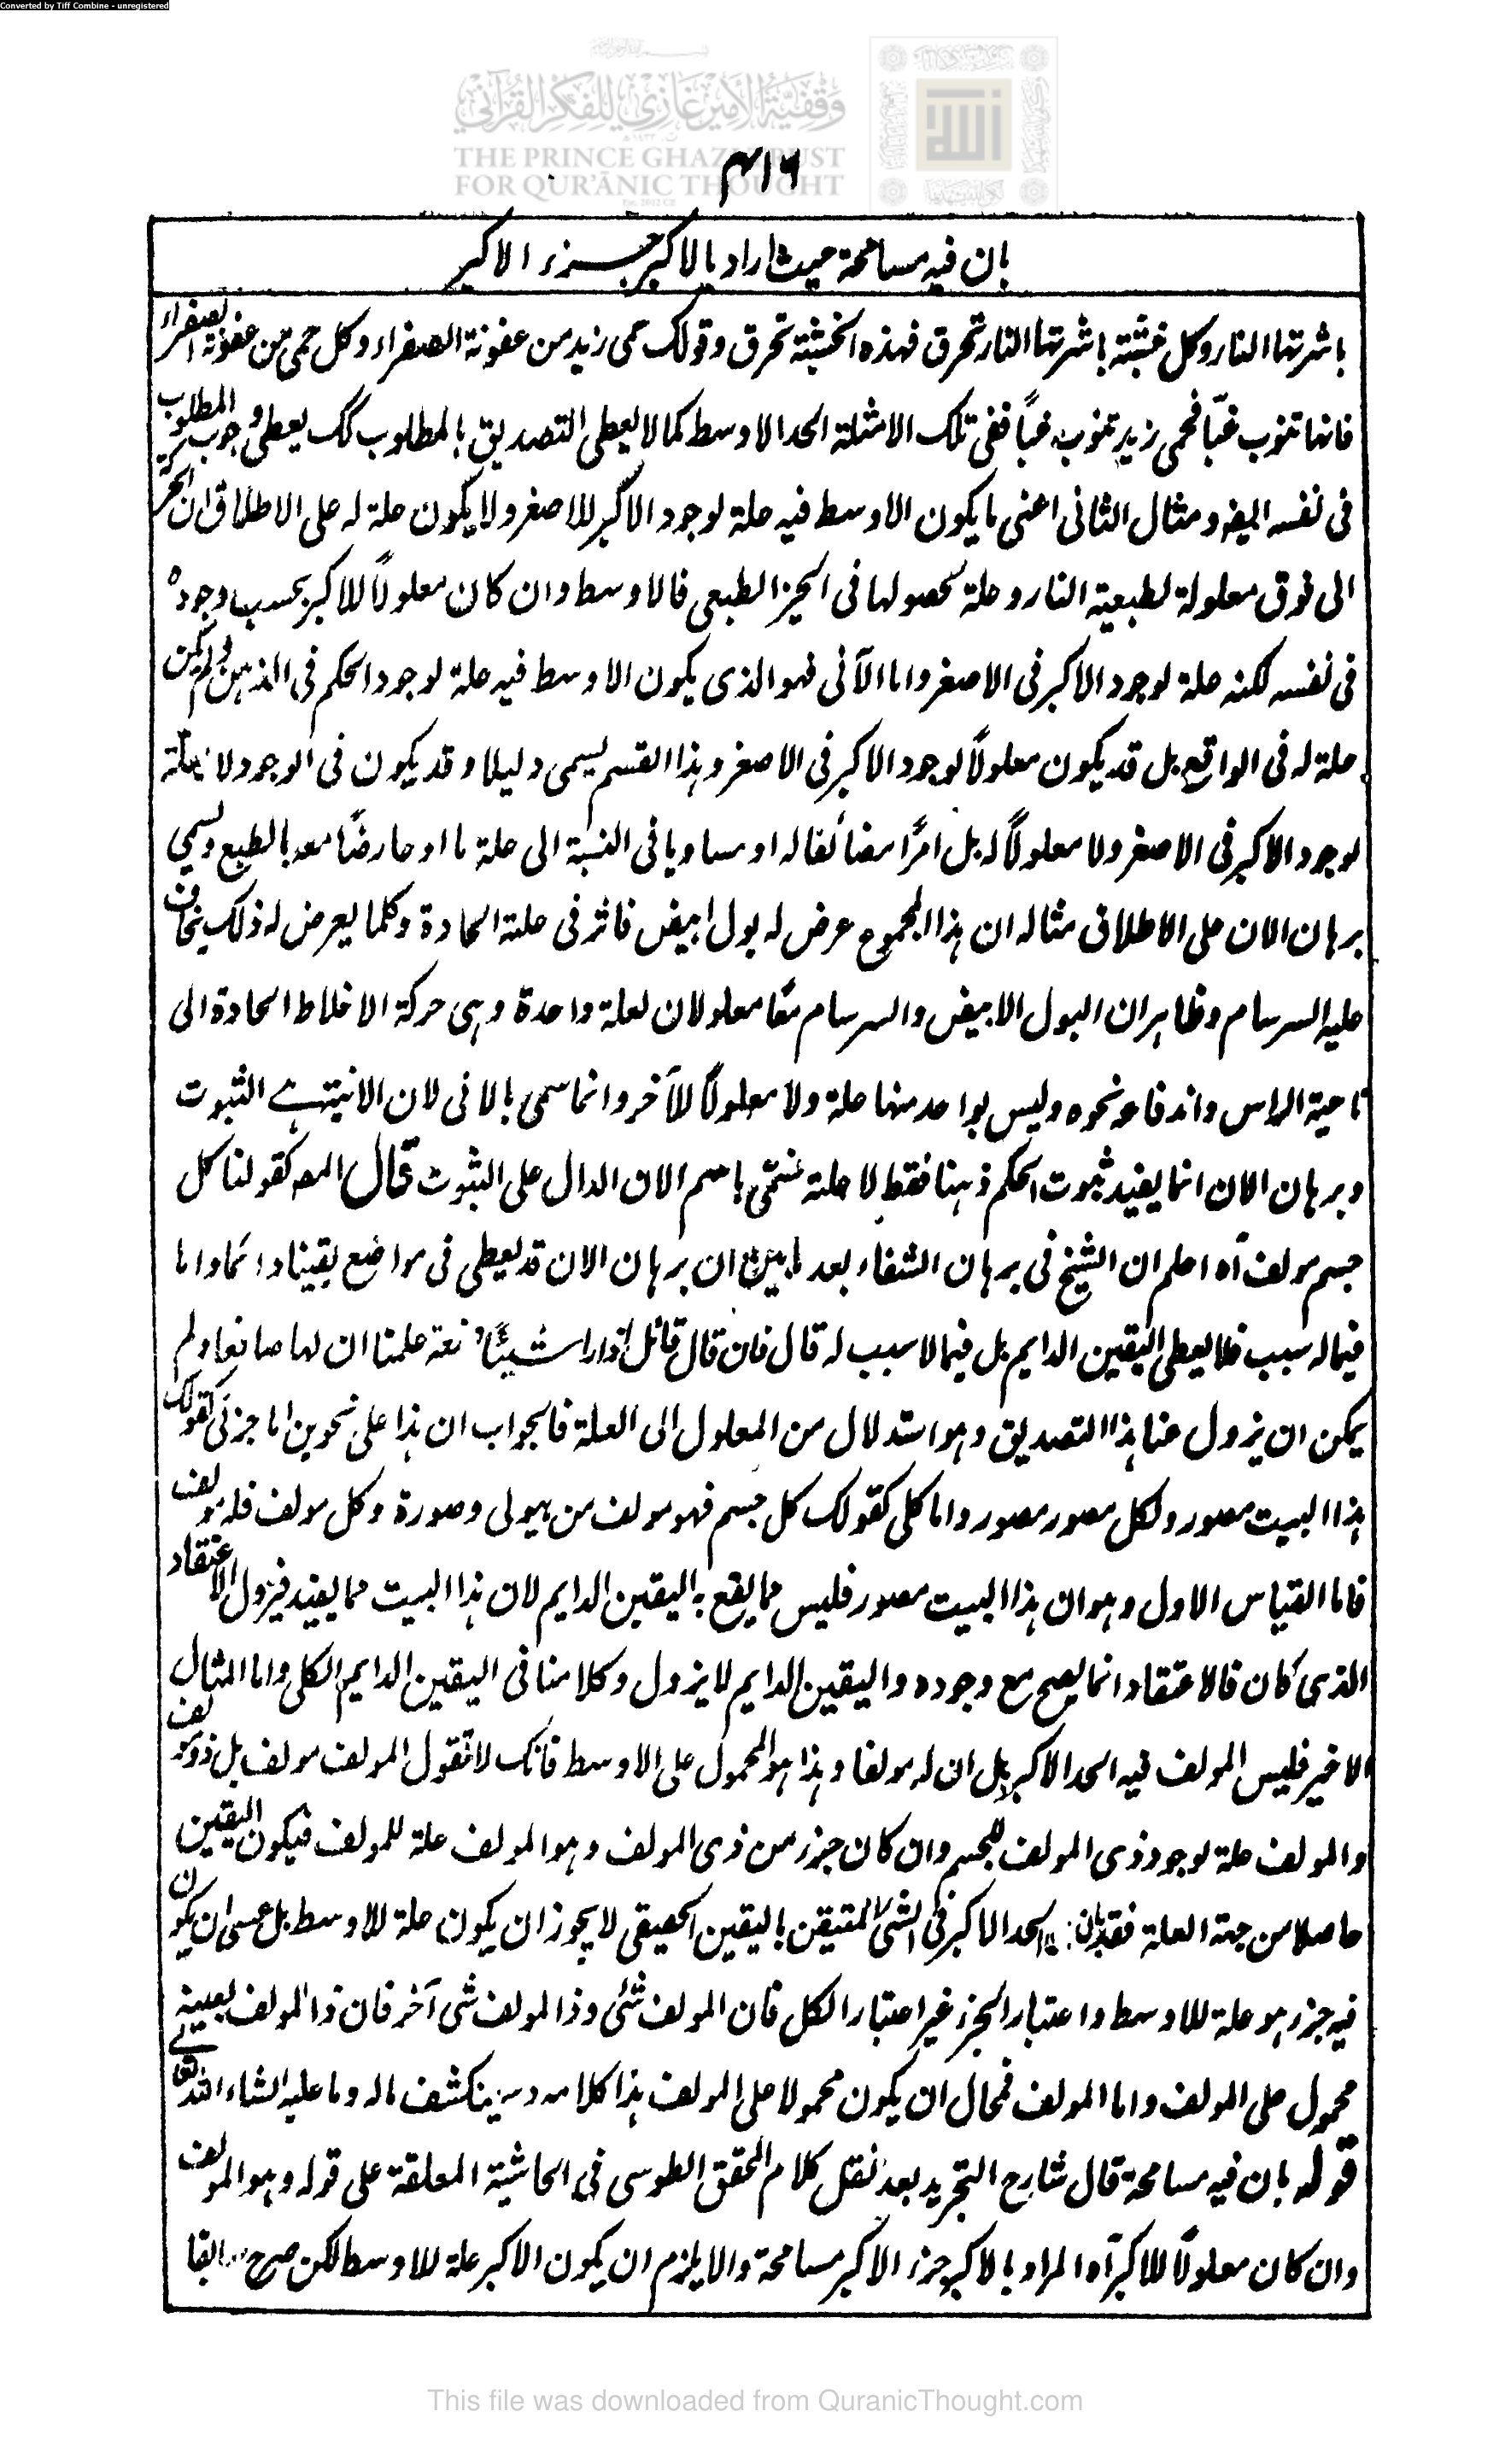 Converted by Tiff Combine - unregistered
وقفية الأمير غازي للفكر القرآني
THE PRINCE GHAZI TRUST
FOR QUR'ĀNIC THOUGHT
۴۱۶
بان فيه مسامحة حيث اراد بالاكبر جزء الاكبر
باشرتها النار وكل خشبة باشرتها النار تحرق فهذه الخشبة تحرق وقولك حمى زيد من عفونة الصفراء وكل حمى من عفونة الصفراء
فانها تنوب غبًا فحمى زيد تنوب غبًا ففى تلك الامثلة الحد الاوسط كما لا يعطى التصديق بالمطلوب كك يعطى وجوب المطلوب
فى نفسه ايضا ومثال الثانى اعنى ما يكون الاوسط فيه علة لوجود الاكبر للاصغر ولا يكون علة له على الاطلاق ان الحركة
الى فوق معلولة لطبعية النار وعلة لحصولها فى الحيز الطبعى فالاوسط وان كان معلولًا للاكبر بحسب وجوده
فى نفسه لكنه علة لوجود الاكبر فى الاصغر واما الآنى فهو الذى يكون الاوسط فيه علة لوجود الحكم فى الذهن ولم يكن
علة له فى الواقع بل قد يكون معلولًا لوجود الاكبر فى الاصغر وهذا القسم يسمى دليلا وقد يكون فى الوجود لا علة
لوجود الاكبر فى الاصغر ولا معلولًا له بل امرًا مضائفا له او مساويا فى النسبة الى علة ما او عارضًا معه بالطبع ويسمى
برهان الان على الاطلاق مثاله ان هذا المحموم عرض له بول ابيض خاثر فى علته الحادة وكلما يعرض له ذلك يخاف
عليه السرسام وظاهر ان البول الابيض والسرسام معًا معلولان لعلة واحدة وهى حركة الاخلاط الحادة الى
ناحية الراس واندفاعه نحوه وليس بواحد منهما علة ولا معلولًا للآخر وانما سمى بالانى لان الانية هے الثبوت
وبرهان الان انما يفيد ثبوت الحكم ذهنا فقط لا علته فسمّى باسم الان الدال على الثبوت قال المصـ كقولنا كل
جسم مولف آه اعلم ان الشيخ فى برهان الشفاء بعد ما بين ان برهان الان قد يعطى فى مواضع يقينا دائما واما
فيما له سبب فلا يعطى اليقين الدايم بل فيما لا سبب له قال فان قال قائل اذا راينا صنعة علمنا ان لها صانعا ولم
يمكن ان يزول عنا هذا التصديق وهو استدلال من المعلول الى العلة فالجواب ان هذا على نحوين اما جزئى كقولك
هذا البيت مصور ولكل مصور مصور واما كلى كقولك كل جسم فهو مولف من هيولى وصورة وكل مولف فله مولف
فاما القياس الاول وهو ان هذا البيت مصور فليس مما يقع به اليقين الدايم لان هذا البيت مما يفسد فيزول الاعتقاد
الذى كان فالاعتقاد انما يصح مع وجوده واليقين الدايم لا يزول وكلامنا فى اليقين الدايم الكلى واما المثال
الاخير فليس المولف فيه الحد الاكبر بل ان له مولفا وهذا هو المحمول على الاوسط فانك لا تقول المولف مولف بل ذو مولف
والمولف علة لوجود ذى المولف للجسم وان كان جزء من ذى المولف وهو المولف علة للمولف فيكون اليقين
حاصلا من جهة العلة فقد بان ان الحد الاكبر فى الشئ المتيقن باليقين الحقيقى لا يجوز ان يكون علة للاوسط بل عسى ان يكون
فيه جزء هو علة للاوسط واعتبار الجزء غير اعتبار الكل فان المولف شئى وذا المولف شئ آخر فان ذا المولف بعينه
محمول على المولف واما المولف فمحال ان يكون محمولا على المولف هذا كلامه وسينكشف ماله وما عليه انشاء الله تعالى
قوله بان فيه مسامحة قال شارح التجريد بعد نقل كلام المحقق الطوسى فى الحاشية المعلقة على قوله وهو المولف
وان كان معلولًا للاكبر آه المراد بالاكبر جزء الاكبر مسامحة والا يلزم ان يكون الاكبر علة للاوسط لكن صرح سابقا
This file was downloaded from QuranicThought.com